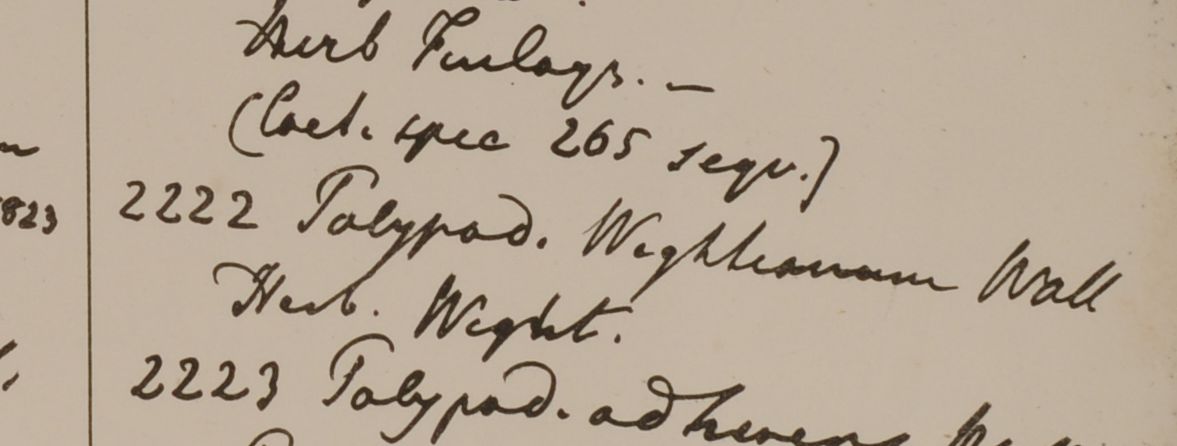 Herb Finlays. —
(Coel. spec 265 seqv.)
823
2222 Polypod. Wightianum Wall
Herb. Wight.
2223 Polypod. adherens